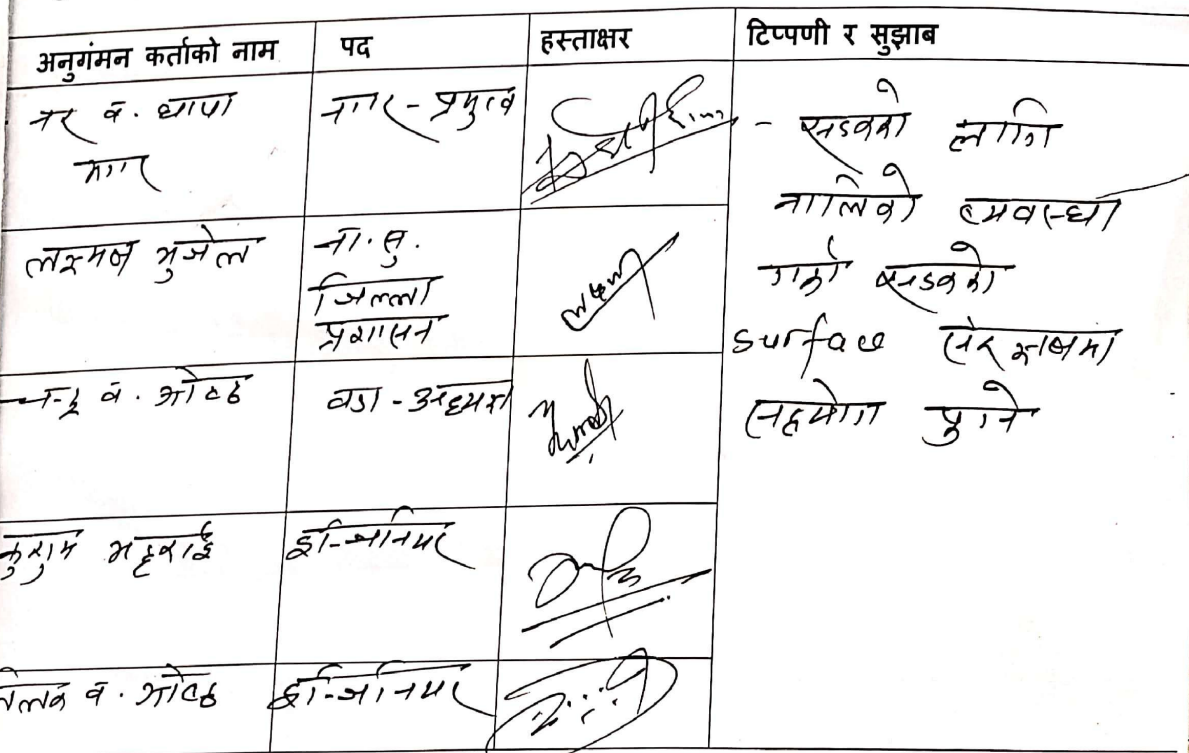 अनुगंमन कर्ताको नाम पद हस्ताक्षर टिप्पणी र सुझाब
नर ब. थापा
मगर
नगर-प्रमुख
- सडकको लागि
नालिको व्यवस्था
गर्को सडकको
surface संरक्षणमा
सहयोग पुग्ने
लक्ष्मण भुजेल
ना.सु.
जिल्ला
प्रशासन
ब. ओठ
वडा-अध्यक्ष
कुसुम भट्टराई इन्जिनियर
तिलक ब. ओठ इन्जिनियर